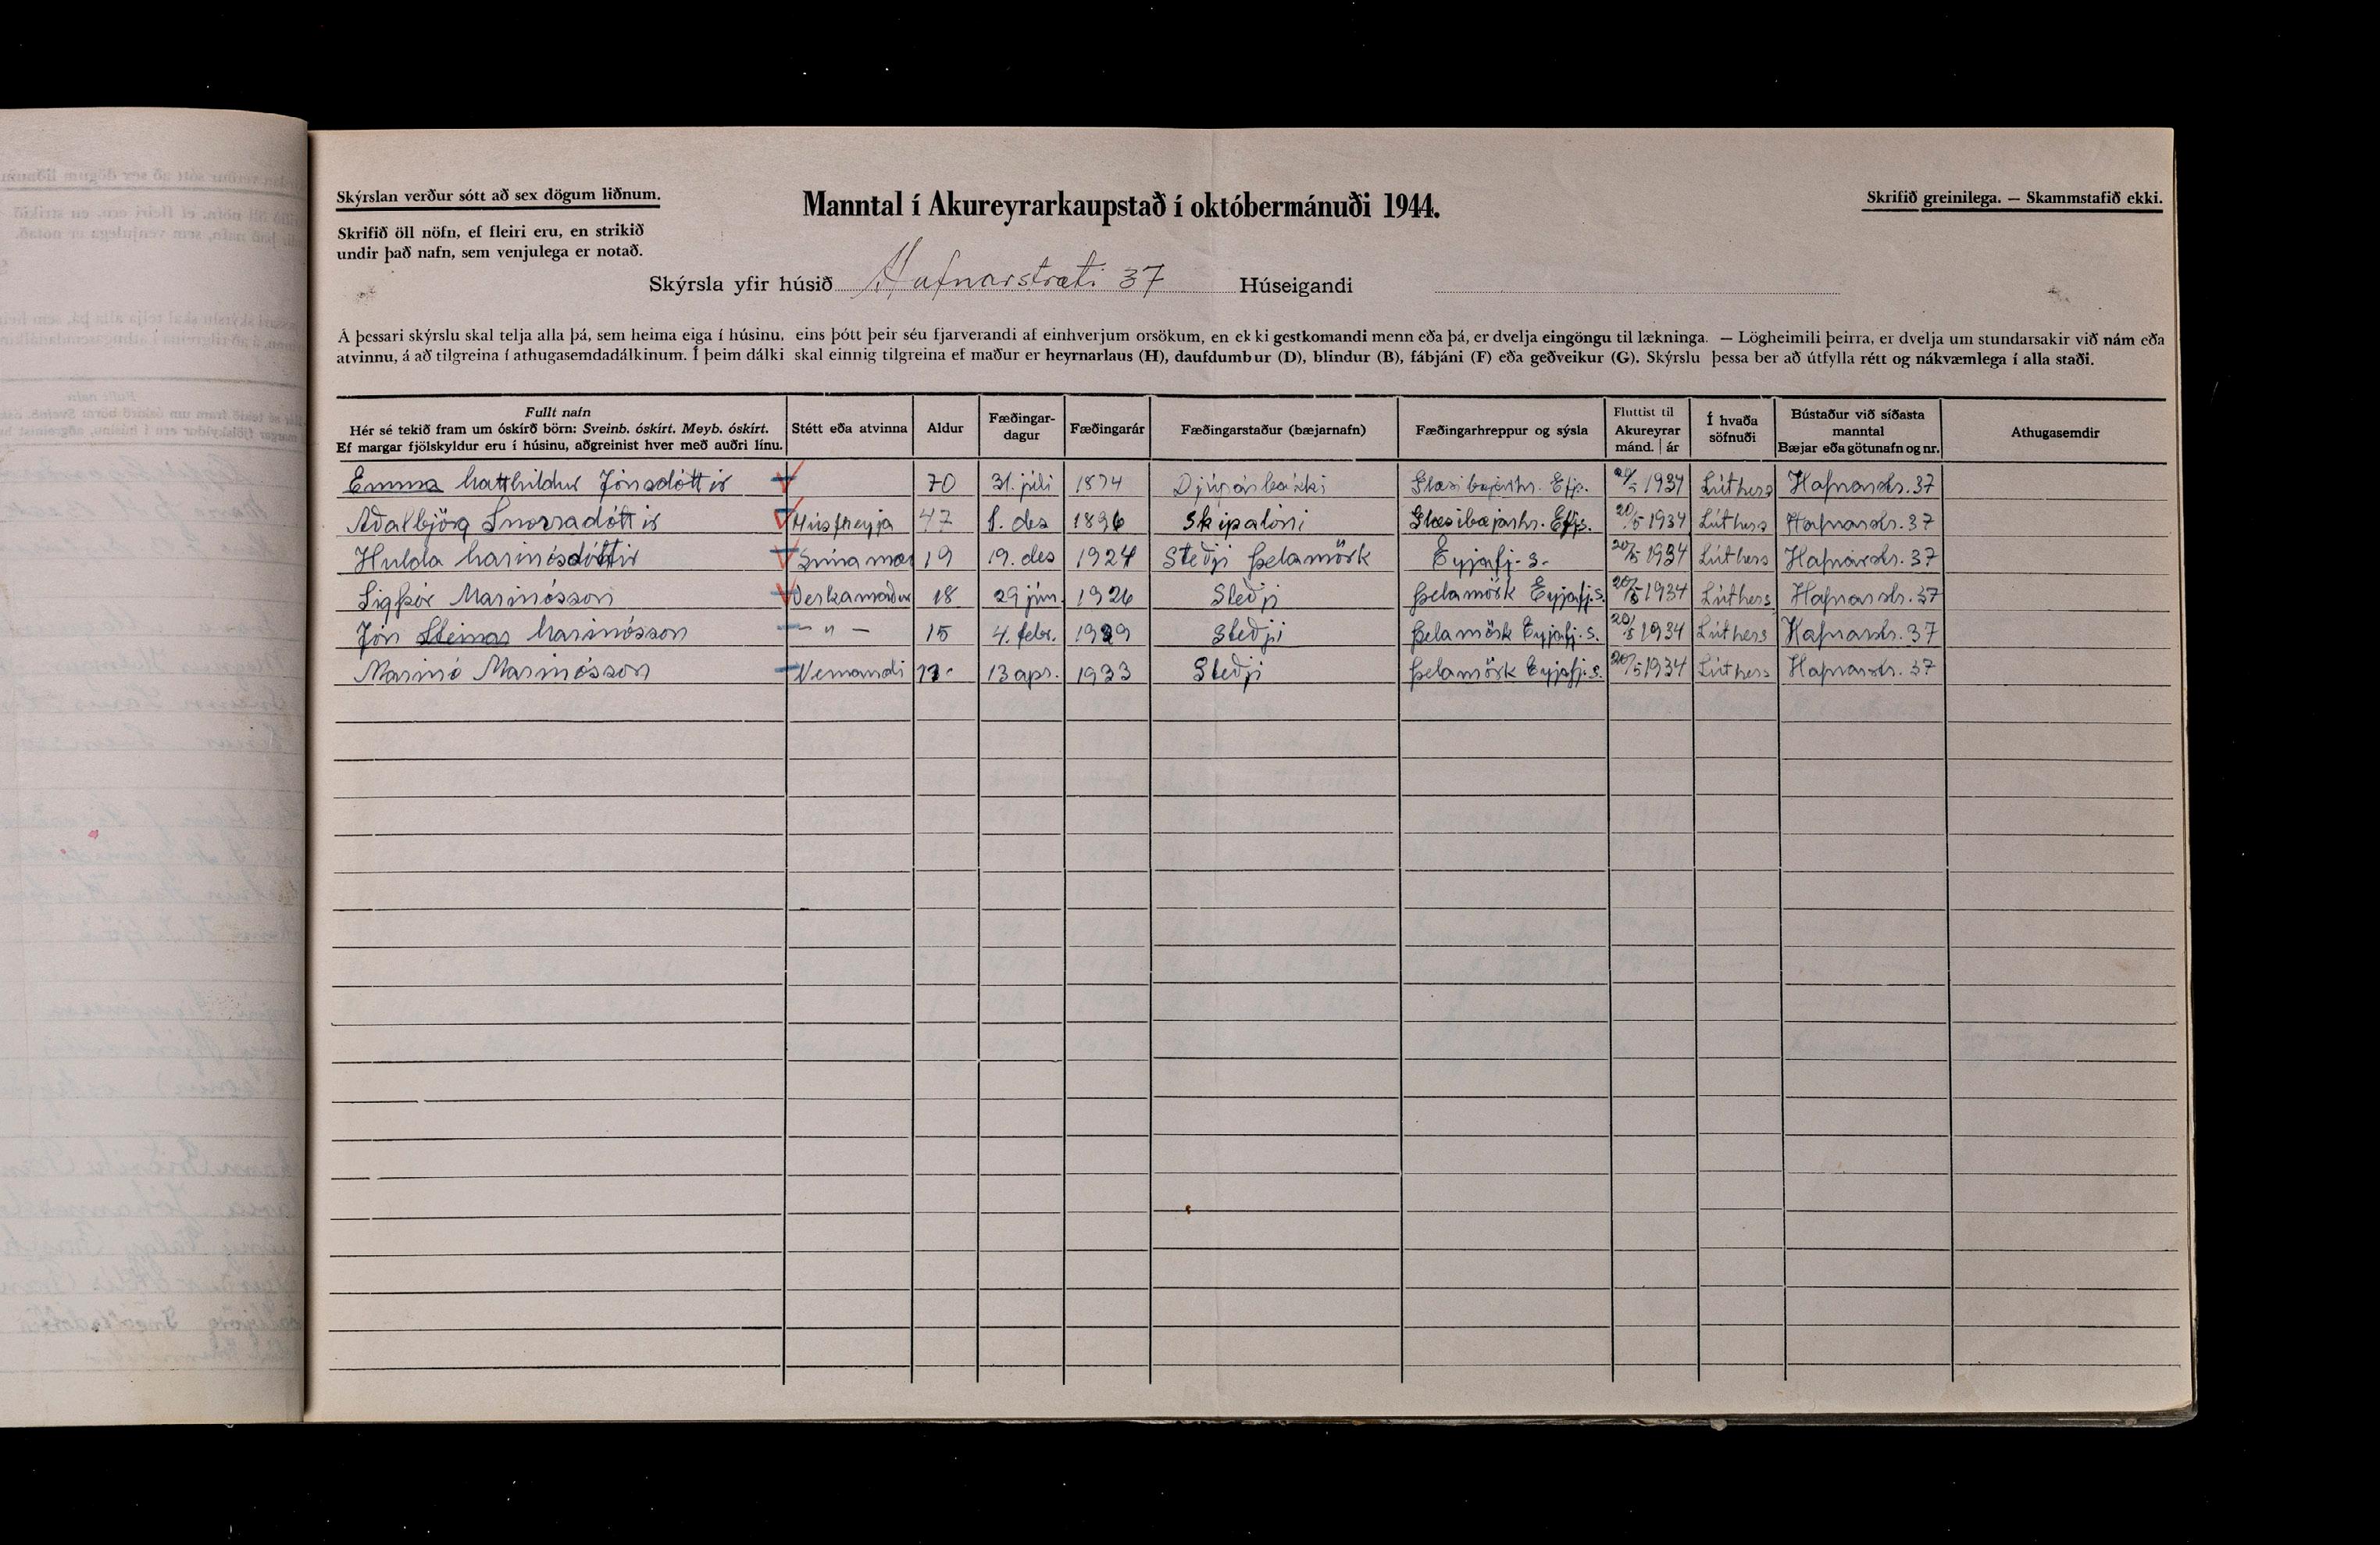 Skýrslan verður sótt að sex dögum liðnum.
Skrifið öll nöfn, ef fleiri eru, en strikið
undir það nafn, sem venjulega er notað.
Manntal í Akureyrarkaupstað í októbermánuði 1944.
Skrifið greinilega. — Skammstafið ekki.
Skýrsla yfir húsið Hafnarstræti 37 Húseigandi
Á þessari skýrslu skal telja alla þá, sem heima eiga í húsinu, eins þótt þeir séu fjarverandi af einhverjum orsökum, en ekki gestkomandi menn eða þá, er dvelja eingöngu til lækninga. — Lögheimili þeirra, er dvelja um stundarsakir við nám eða
atvinnu, á að tilgreina í athugasemdadálkinum. Í þeim dálki skal einnig tilgreina ef maður er heyrnarlaus (H), daufdumbur (D), blindur (B), fábjáni (F) eða geðveikur (G). Skýrslu þessa ber að útfylla rétt og nákvæmlega í alla staði.
Fullt nafn
Hér sé tekið fram um óskírð börn: Sveinb. óskírt. Meyb. óskírt.
Ef margar fjölskyldur eru í húsinu, aðgreinist hver með auðri línu.
Stétt eða atvinna
Aldur
Fæðingar-
dagur
Fæðingarár
Fæðingarstaður (bæjarnafn)
Fæðingarhreppur og sýsla
Fluttist til
Akureyrar
mánd. | ár
Í hvaða
söfnuði
Bústaður við síðasta
manntal
Bæjar eða götunafn og nr.
Athugasemdir
Emma Matthildur Jónsdóttir 70 31. júlí 1874 Djúpárbakki Glæsibæjarhr. Efjs. 20/5 1934 Lúthers Hafnarstr. 37
Aðalbjörg Snorradóttir Húsfreyja 47 1. des 1896 Skipalóni Glæsibæjarhr. Efjs. 20/5 1934 Lúthers Hafnarstr. 37
Hulda Marinósdóttir 19 19. des 1924 Steðji Þelamörk Eyjafj. s. 20/5 1934 Lúthers Hafnarstr. 37
Sigþór Marinósson Verkamaður 18 29 jún. 1926 Steðji Þelamörk Eyjafj. s. 20/5 1934 Lúthers Hafnarstr. 37
Jón Steinar Marinósson — " — 15 4. febr. 1929 Steðji Þelamörk Eyjafj. s. 20/5 1934 Lúthers Hafnarstr. 37
Marinó Marinósson Nemandi 13 apr. 1933 Steðji Þelamörk Eyjafj. s. 20/5 1934 Lúthers Hafnarstr. 37